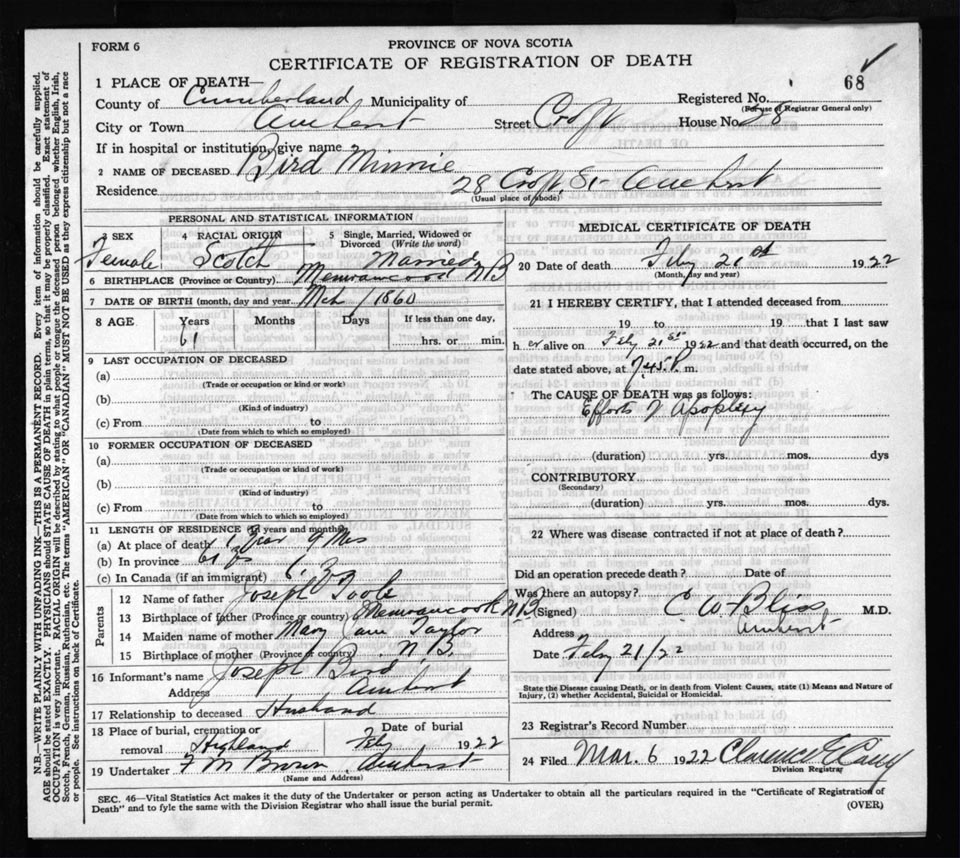 FORM 6
PROVINCE OF NOVA SCOTIA
CERTIFICATE OF REGISTRATION OF DEATH
68
1 PLACE OF DEATH—
County of Cumberland Municipality of
Registered No.
(For use of Registrar General only)
City or Town Amherst Street Croft House No. 28
If in hospital or institution, give name
2 NAME OF DECEASED Bird Minnie
Residence 28 Croft St Amherst
(Usual place of abode)
PERSONAL AND STATISTICAL INFORMATION
3 SEX Female
4 RACIAL ORIGIN Scotch
5 Single, Married, Widowed or Divorced (Write the word) Married
6 BIRTHPLACE (Province or Country) N B
7 DATE OF BIRTH (month, day and year Mch / 1860
8 AGE Years Months Days If less than one day,
61 hrs. or min.
9 LAST OCCUPATION OF DECEASED
(a)
(Trade or occupation or kind or work)
(b)
(Kind of industry)
(c) From to
(Date from which to which so employed)
10 FORMER OCCUPATION OF DECEASED
(a)
(Trade or occupation or kind or work)
(b)
(Kind of industry)
(c) From to
(Date from which to which so employed)
11 LENGTH OF RESIDENCE (in years and months)
(a) At place of death 1 Year 9 Mos
(b) In province
(c) In Canada (if an immigrant)
Parents
12 Name of father Joseph Toole
13 Birthplace of father (Province or country) Memramcook N B
14 Maiden name of mother Mary Jane Taylor
15 Birthplace of mother (Province or country) N B
16 Informant's name Joseph Bird
Address Amherst
17 Relationship to deceased Husband
18 Place of burial, cremation or removal Highland
Date of burial Feby 1922
19 Undertaker F M Brown, Amherst
(Name and Address)
MEDICAL CERTIFICATE OF DEATH
20 Date of death Feby 21st 1922
(Month, day and year)
21 I HEREBY CERTIFY, that I attended deceased from
19 to 19 that I last saw
h er alive on Feby 21st 1922 and that death occurred, on the
date stated above, at 7.45 P. m.
The CAUSE OF DEATH was as follows:
Effects of Apoplexy
(duration) yrs. mos. dys
CONTRIBUTORY
(Secondary)
(duration) yrs. mos. dys.
22 Where was disease contracted if not at place of death?
Did an operation precede death? Date of
Was there an autopsy?
(Signed) C W Bliss M.D.
Address Amherst
Date Feby 21/22
State the Disease causing Death, or in death from Violent Causes, state (1) Means and Nature of
Injury, (2) whether Accidental, Suicidal or Homicidal.
23 Registrar's Record Number
24 Filed Mar. 6 1922 Clarence
Division Registrar
SEC. 46—Vital Statistics Act makes it the duty of the Undertaker or person acting as Undertaker to obtain all the particulars required in the "Certificate of Registration of
Death" and to fyle the same with the Division Registrar who shall issue the burial permit.
(OVER)
N.B.—WRITE PLAINLY WITH UNFADING INK—THIS IS A PERMANENT RECORD. Every item of information should be carefully supplied.
AGE should be stated EXACTLY. PHYSICIANS should STATE CAUSE OF DEATH in plain terms, so that it may be properly classified. Exact statement of
OCCUPATION is very important. RACIAL ORIGIN will be described by stating to what people or tongue the deceased person belonged whether English, Irish,
Scotch, French, German, Russian, Ruthenian, etc. The terms "AMERICAN" or "CANADIAN" MUST NOT BE USED as they express citizenship but not a race
or people. See instructions on back of Certificate.